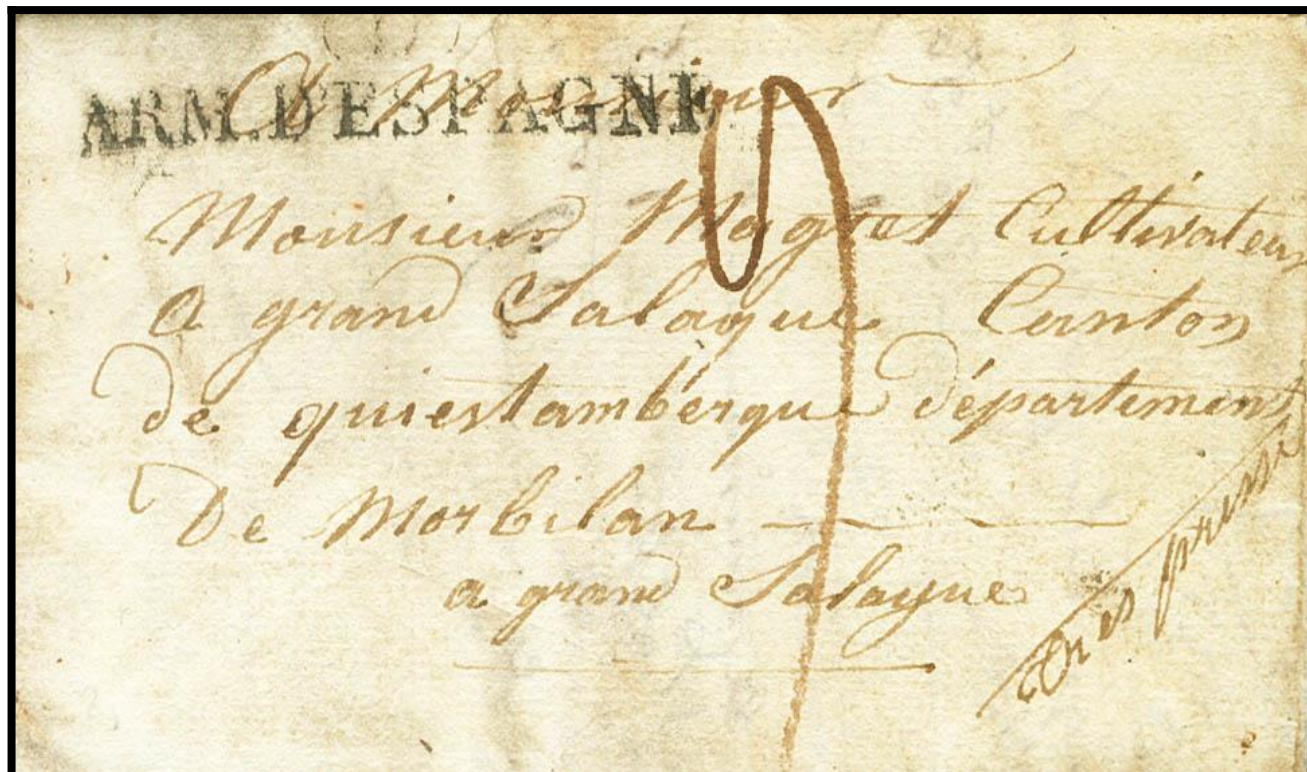 A Monsieur
ARM. D'ESPAGNE
Monsieur Magret Cultivateur
a grand Salague Canton
de quiestambergue département
De Morbilan
a grand Salague
tres pressé